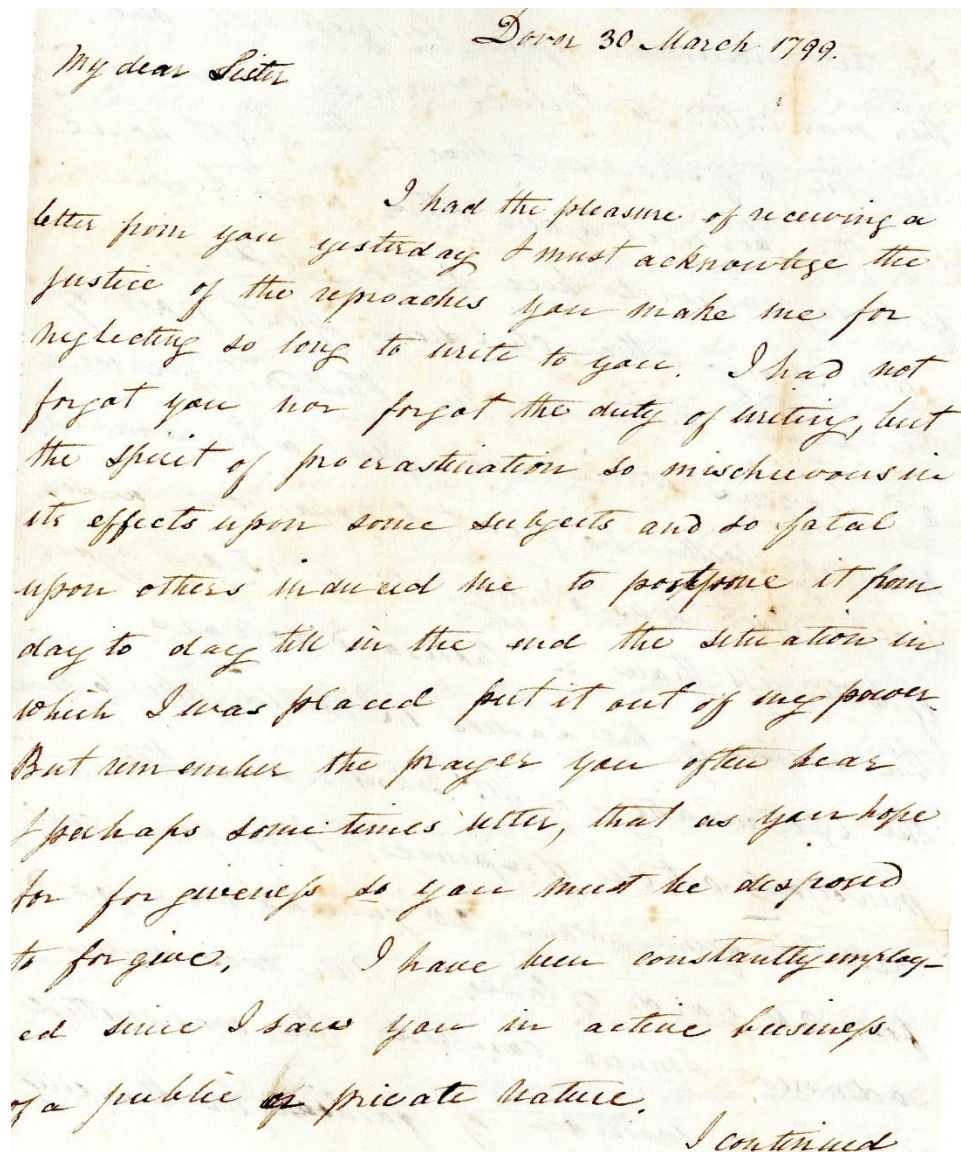 Dover 30 March 1799.
My dear Sister
I had the pleasure of receiving a
letter from you yesterday I must acknowlege the
justice of the reproaches you make me for
neglecting so long to write to you. I had not
forgot you nor forgot the duty of writing, but
the spirit of procrastination so mischievous in
its effects upon some subjects and so fatal
upon others induced me to postpone it from
day to day till in the end the situation in
which I was placed put it out of my power.
But remember the prayer you often hear
& perhaps sometimes utter, that as you hope
for forgiveness so you must be disposed
to forgive. I have been constantly employ-
ed since I saw you in active business
of a public or private nature.
I continued